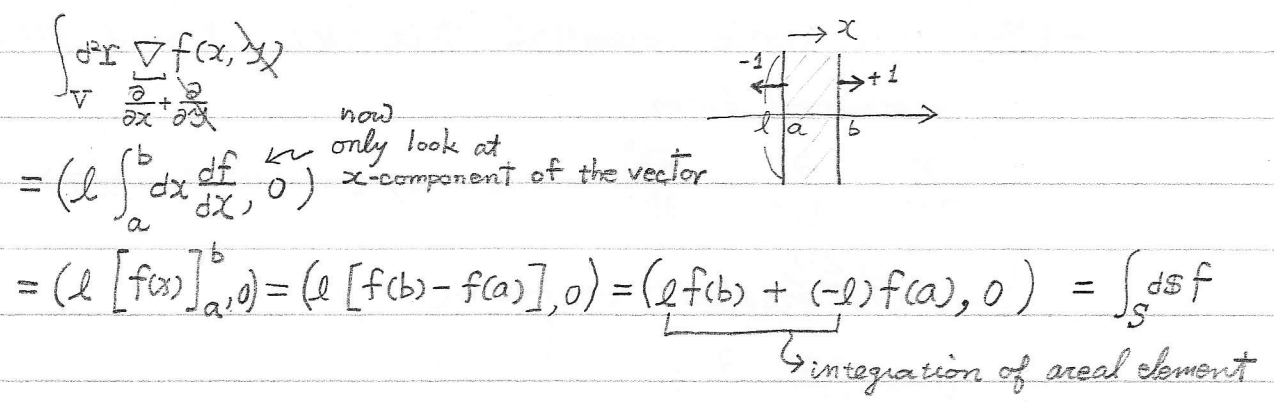 ∫_V d²r ∇ f(x, y)
∂/∂x + ∂/∂y
→ x
-1 +1
l a b
now
only look at
x-component of the vector
= (l ∫_a^b dx df/dx, 0)
= (l [f(x)]_a^b, 0) = (l [f(b) - f(a)], 0) = (l f(b) + (-l) f(a), 0) = ∫_S dS f
integration of areal element